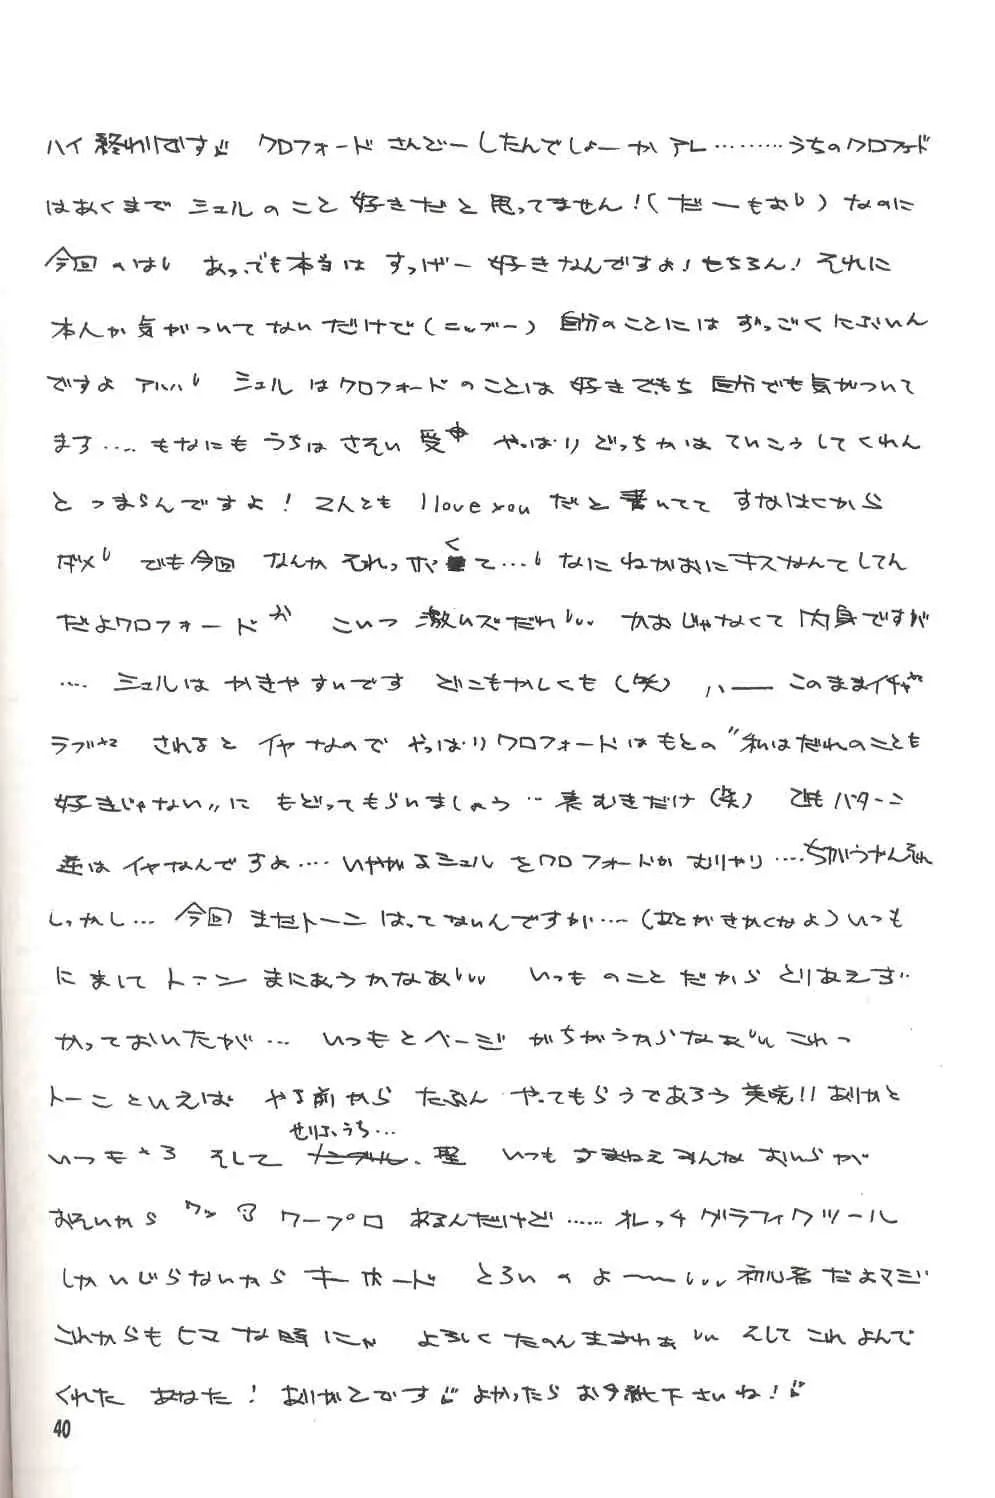 ハイ終わりです♪ クロフォードさんどーしたんでしょーか アレ………うちのクロフォード
はあくまで シュルのこと 好きだと思ってません!(だーもおし) なのに
今回のはし あっ、でも本当は すっげー 好きなんですよ!もちろん! それに
本人が気がついてないだけで(ニッブー) 自分のことには すっごくにぶいん
ですよ アハハし シュルはクロフォードのことは 好きでもち 自分でも気がついて
ます…. もなにも うちは さそい受中 やっぱり どっちかは ていこうしてくれん
と つまらんですよ! 2人とも I love you だと 書いてて すなはくから
ダメし でも今回 なんか それっぽくて…し なにねがおにキスなんてしてん
だよクロフォード こいつ 激ムズだわ かおじゃなくて 内身ですが
…. シュルは かきやすいです どこもかしくも(笑) ハー このままイチャ
ラブ されると イヤなので やっぱりクロフォードはもとの〝私はだれのことも
好きじゃない〟に もどってもらいましょう‥表むきだけ(笑) でもパターン
逆は イヤなんですよ…. いやがるシュルをクロフォードが むりやり….ちがうやんそれ
しっかし… 今回 まだトーン はってないんですが….(あとがきかくなよ)いつも
にまして トーン まにあうかなあ いつものことだから とりあえず
かっておいたが… いつもとページがちがうからなあ これっ
トーンといえば やる前から たぶん やってもらうであろう 美暁!! ありがと
せりふ、うち…
いつも そして 聖 いつも すまねえ みんな おいらが
おそいから ワープロ あるんだけど…… オレっチ グラフィクツール
しかいじらないから キーボード とろいのよー 初心者だよマジ
これからもヒマな時にゃ よろしくたのんまさわぁ そして これ よんで
くれた あなた! ありがとです♪ よかったら お手紙下さいね!♪
40